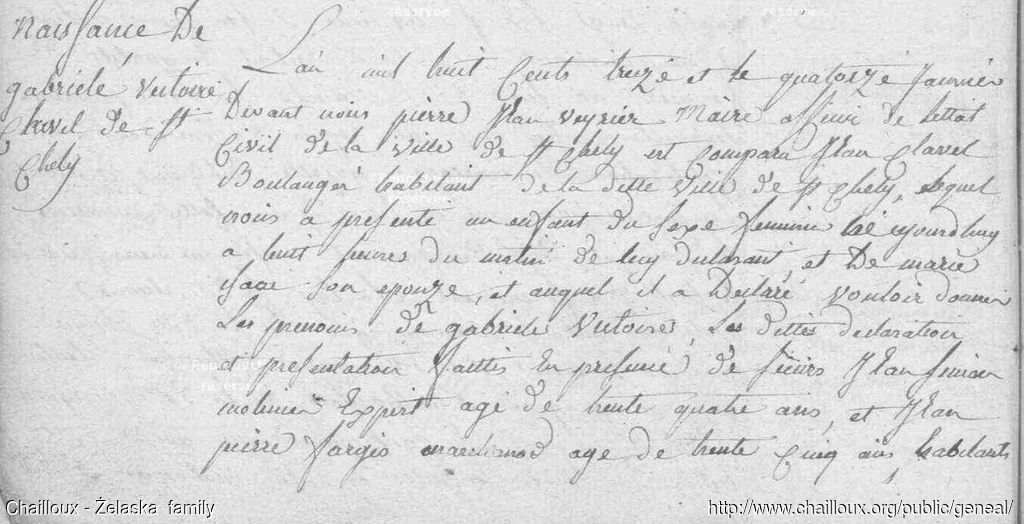 naissance De
gabriele Victoire
Clavel de St
Chely
L'an mil huit Cents treize et le quatorze Janvier
Devant nous pierre Jean veyrier Maire officier de lettat
Civil de la ville de St Chely est Comparu Jean Clavel
Boulanger habitant de la ditte ville de St Chely, lequel
nous a presenté un enfant du sexe feminin né aujourdhuy
a huit heures du matin de luy declarant, et De marie
son epouze, et auquel il a Declaré vouloir donner
Les prenoms de gabriele Victoire, Les dittes declaration
et presentation faittes En presence de sieurs Jean
Expert agé de trente quatre ans, et Jean
pierre farges marchand age de trente Cinq ans, habitants
Chailloux - Żelaska family
http://www.chailloux.org/public/geneal/